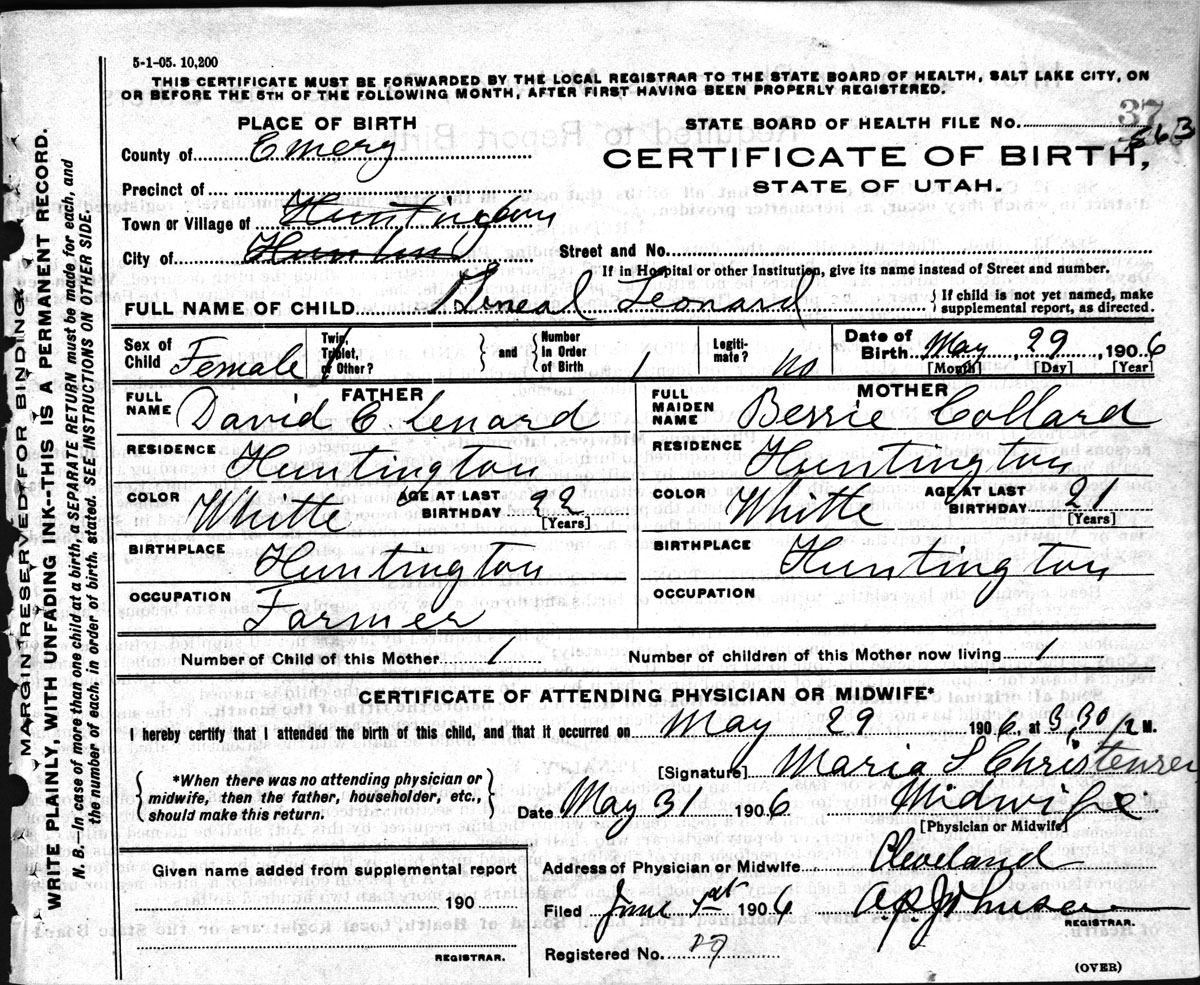 5-1-05. 10,200
THIS CERTIFICATE MUST BE FORWARDED BY THE LOCAL REGISTRAR TO THE STATE BOARD OF HEALTH, SALT LAKE CITY, ON
OR BEFORE THE 5TH OF THE FOLLOWING MONTH, AFTER FIRST HAVING BEEN PROPERLY REGISTERED.
37
PLACE OF BIRTH
STATE BOARD OF HEALTH FILE NO. 563
County of Emery
CERTIFICATE OF BIRTH,
STATE OF UTAH.
Precinct of
Town or Village of Huntington
City of
Street and No.
If in Hospital or other Institution, give its name instead of Street and number.
FULL NAME OF CHILD Leonard
{If child is not yet named, make
supplemental report, as directed.
Sex of Child Female
Twin, Triplet, or Other? 1
and
Number in Order of Birth 1
Legiti-mate? no
Date of Birth May, 29, 1906
[Month] [Day] [Year]
FATHER
FULL NAME David C. Lenard
MOTHER
FULL MAIDEN NAME Bessie Collard
RESIDENCE Huntington
RESIDENCE Huntington
COLOR Whitte
AGE AT LAST BIRTHDAY 22 [Years]
COLOR Whitte
AGE AT LAST BIRTHDAY 21 [Years]
BIRTHPLACE Huntington
BIRTHPLACE Huntington
OCCUPATION Farmer
OCCUPATION
Number of Child of this Mother 1
Number of children of this Mother now living 1
CERTIFICATE OF ATTENDING PHYSICIAN OR MIDWIFE*
I hereby certify that I attended the birth of this child, and that it occurred on May 29 1906, at 3,30 M.
[Signature] Maria S Christensen
{*When there was no attending physician or
midwife, then the father, householder, etc.,
should make this return.}
Date May 31 1906
Midwife
[Physician or Midwife]
Given name added from supplemental report
190
REGISTRAR.
Address of Physician or Midwife Cleveland
Filed June 1st 1906
Johnson
REGISTRAR.
Registered No. 29
(OVER)
MARGIN RESERVED FOR BINDING
WRITE PLAINLY, WITH UNFADING INK-THIS IS A PERMANENT RECORD.
N. B.—In case of more than one child at a birth, a SEPARATE RETURN must be made for each, and
the number of each, in order of birth, stated. SEE INSTRUCTIONS ON OTHER SIDE.